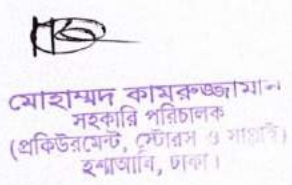 মোহাম্মদ কামরুজ্জামান
সহকারি পরিচালক
(প্রকিউরমেন্ট, স্টোরস ও সাপ্লাই)
ঢাকা।